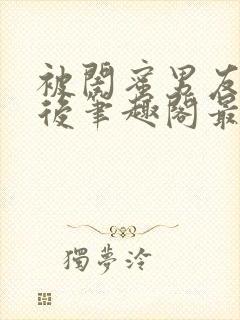 被閨蜜男友
後筆趣閣最
獨夢泠